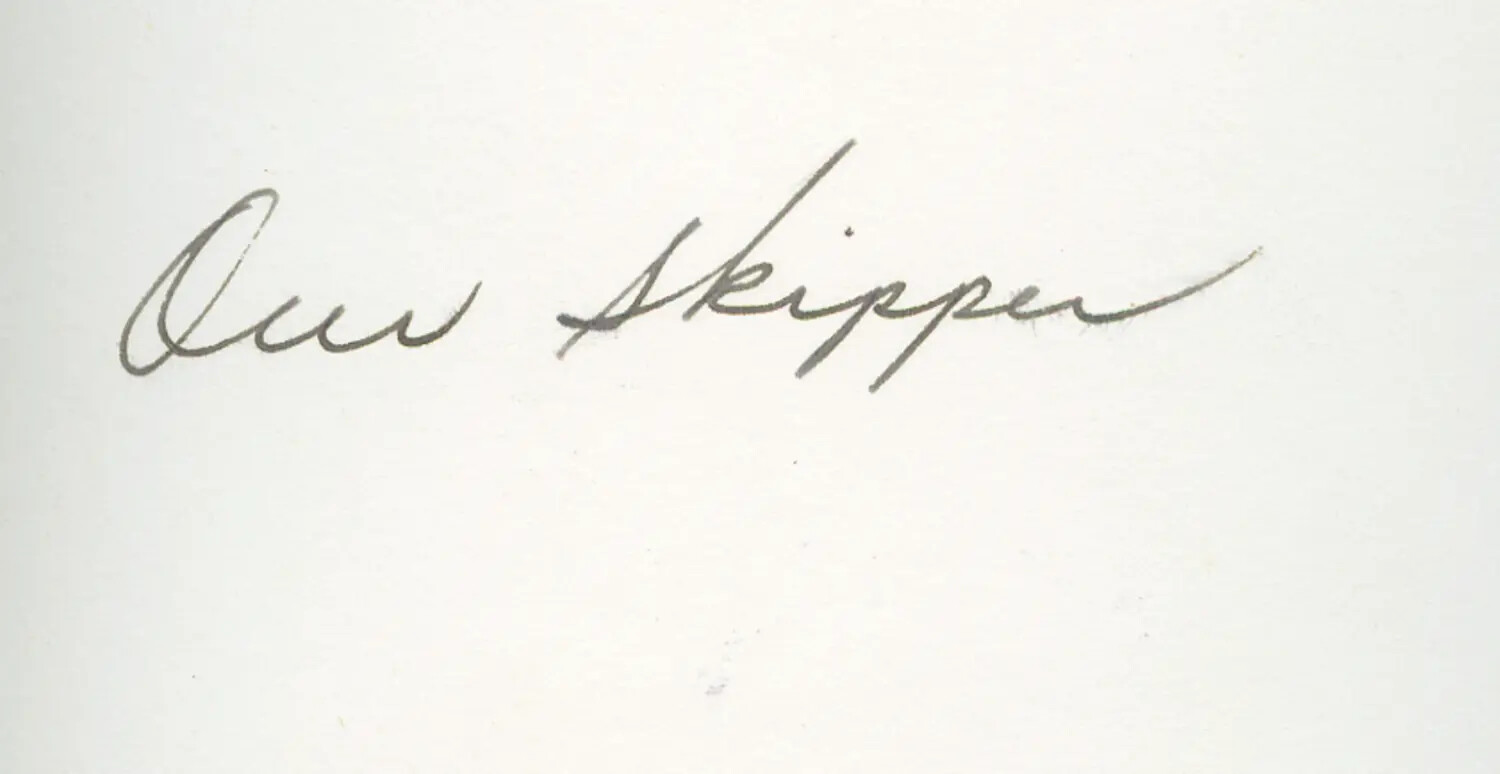 Our Skipper